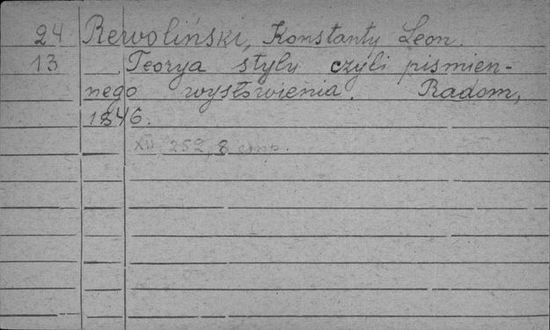 24 Rewoliński, Konstanty Leon.
13 Teorya stylu czyli piśmien-
nego wysłowienia. Radom,
1846.
XII 252, 8